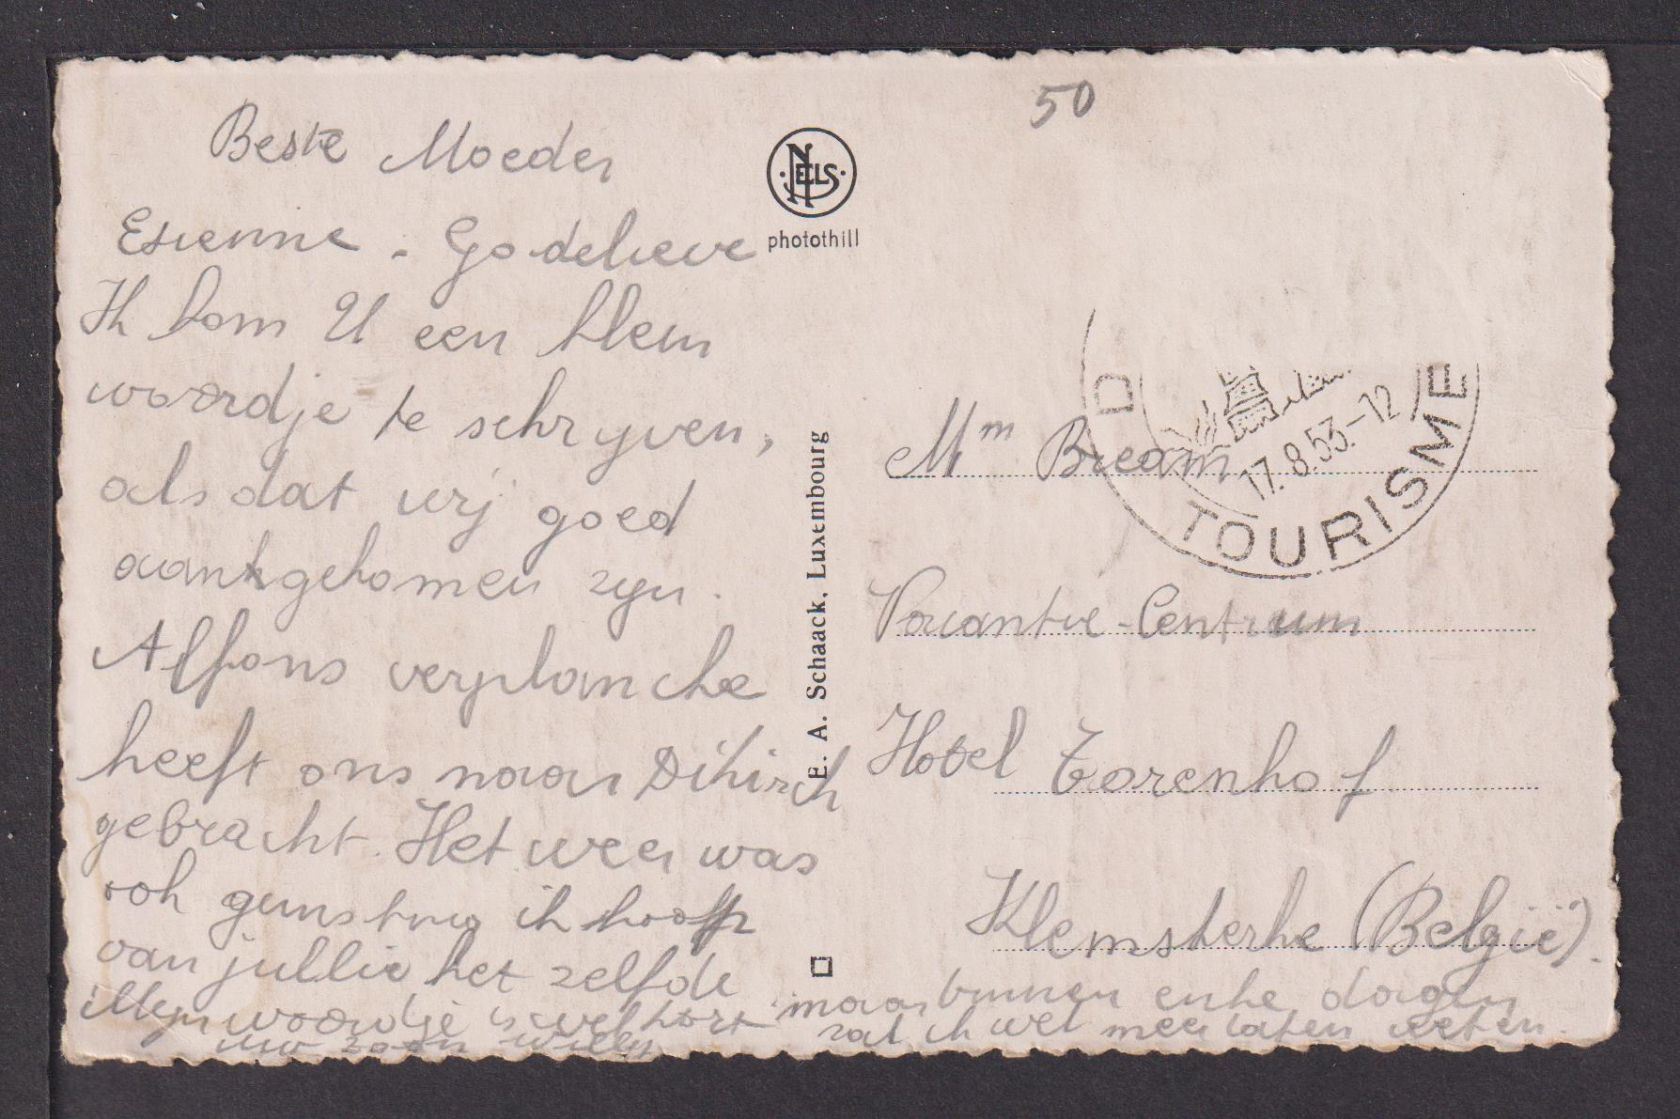 50
Beste Moeder
Etienne - Godelieve
Ik kom U een klein
woordje te schryven,
als dat wij goed
aankgekomen zyn.
Alfons verplancke
heeft ons naar Dikirch
gebracht. Het weer was
ook gunstig ik hoop
van jullie het zelfde
Myn woordje is wel kort maar binnen enke dagen
zal ik wel meer laten weten.
uw zoon Willy
NELS
photothill
E. A. Schaack, Luxembourg
D
17.8.53.-12
TOURISME
Mm
Vacantie-Centrum
Hotel Torenhof
Klemskerke (België).